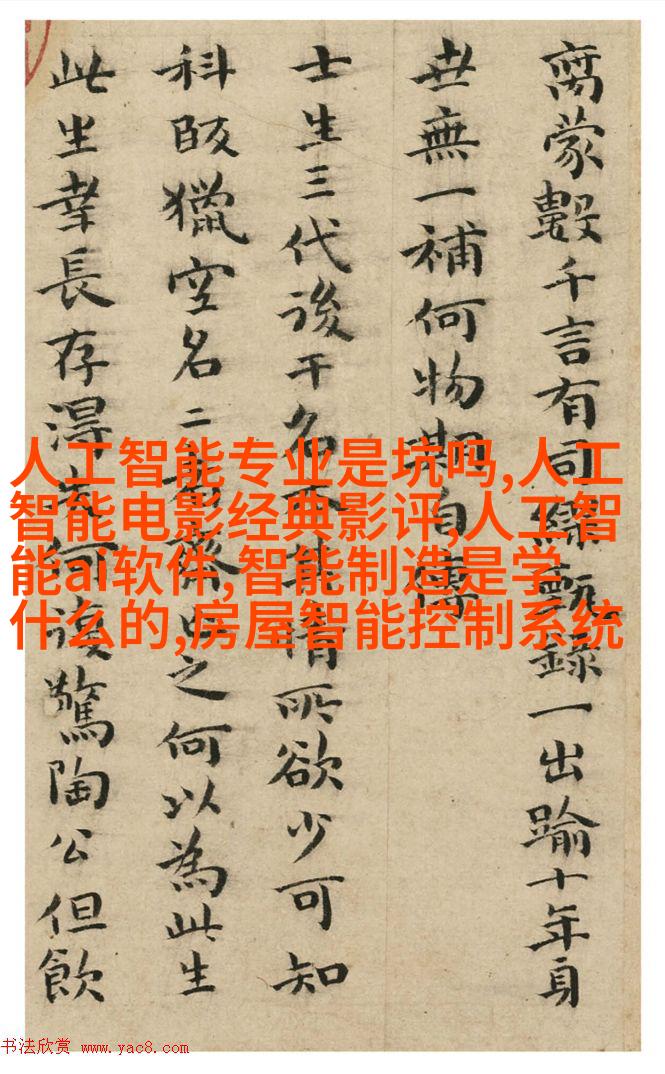 蒙數千言有司繆甄錄一出踰十年身
世無一補何物期自
士生三代後干名能所欲少可知
科獵空名二之何以為此生
此生幸長存得何復驚陶公但飲
人工智能专业是坑吗,人工
智能电影经典影评,人工智
能ai软件,智能制造是学
什么的,房屋智能控制系统
书法欣赏 www.yac8.com